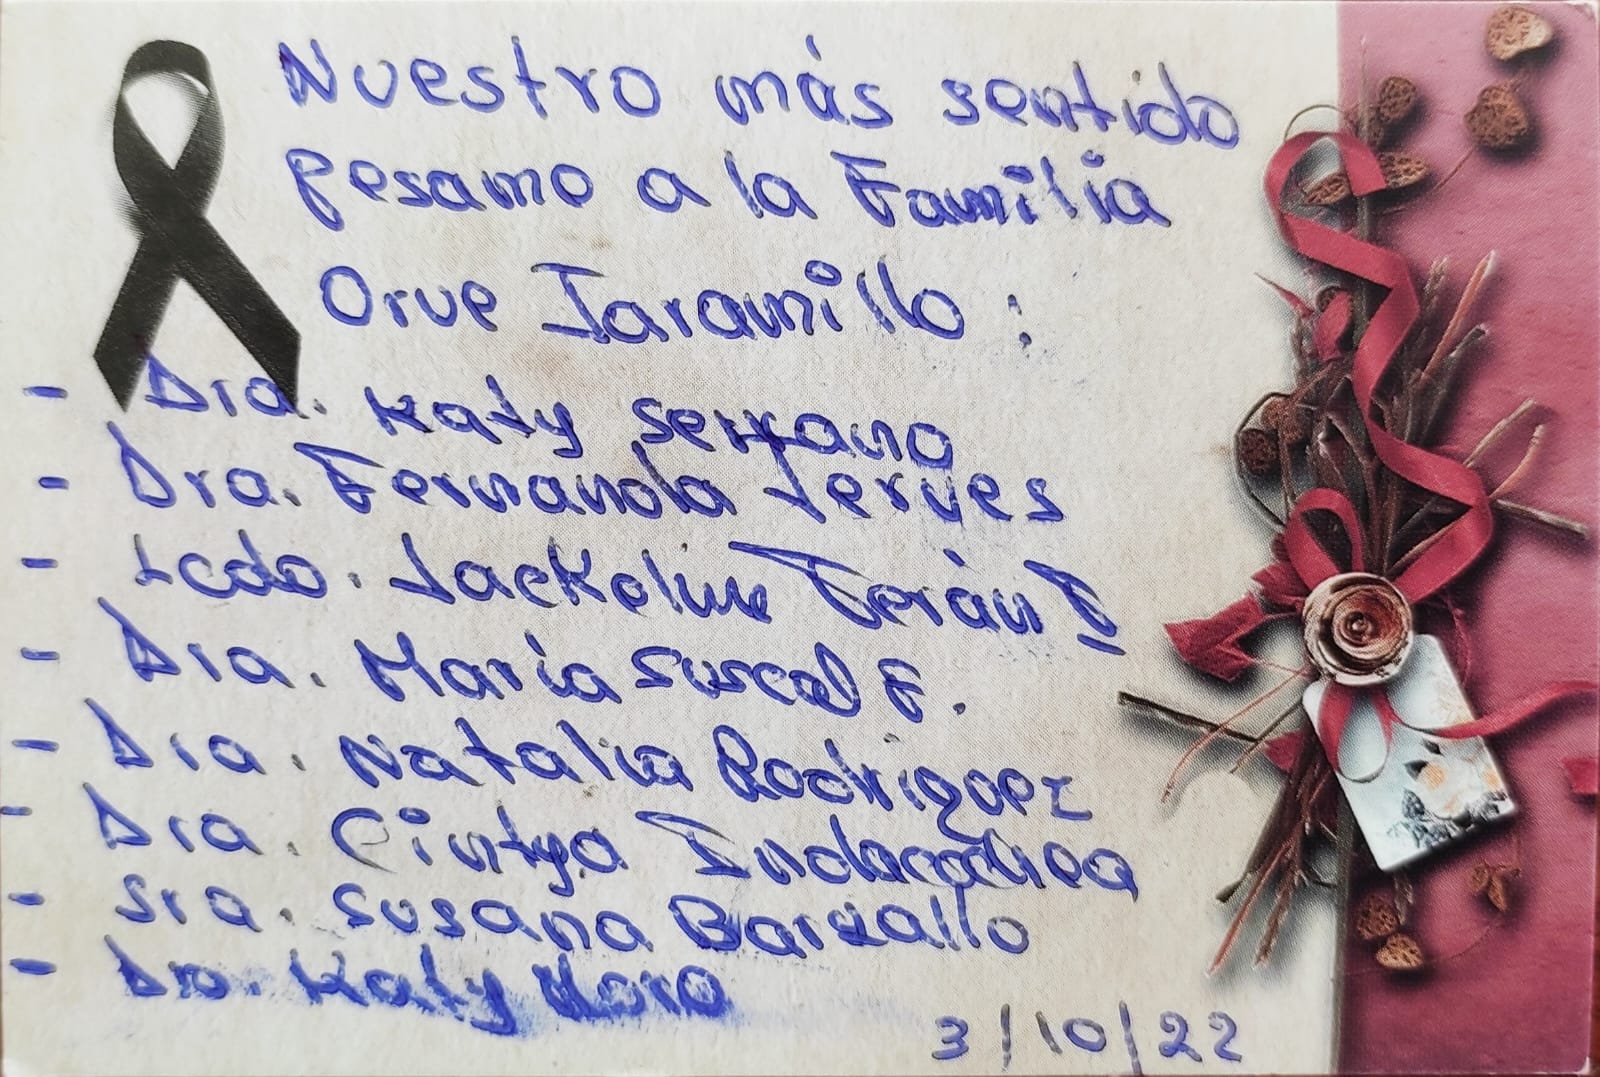 Nuestro más sentido
pesamo a la Familia
Orue Jaramillo :
- Dra. Katy Serrano
- Dra. Fernanda Jerves
- Lcdo. Jackeline Terán T
- Dra. María Suscal F.
- Dra. Natalia Rodriguez
- Dra. Cintya
- Sra. Susana Barzallo
- Dra. Katy Mora
3/10/22